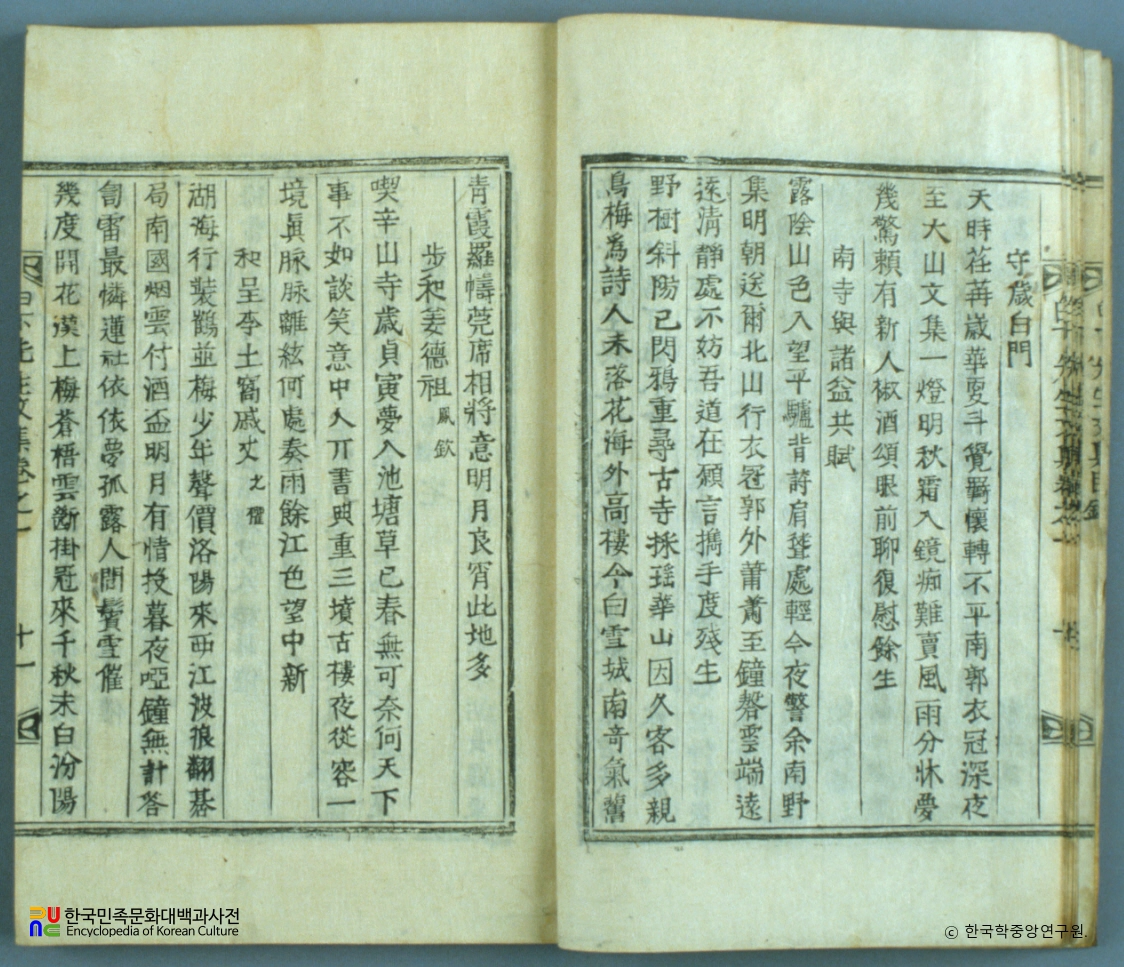 守歲白門
天時荏苒歲華更斗覺羇懷轉不平南郭衣冠深夜
至大山文集一燈明秋霜入鏡痴難賣風雨分牀夢
幾驚賴有新人椒酒頌眼前聊復慰餘生
南寺與諸益共賦
露陰山色入望平驢背詩肩聳處輕今夜警余南野
集明朝送爾北山行衣冠郭外蕭蕭至鐘磬雲端遠
遠淸靜處不妨吾道在願言携手度殘生
野樹斜陽已閃鴉重尋古寺採瑤華山因久客多親
鳥梅爲詩人未落花海外高樓今白雪城南奇氣舊
靑霞羅幬莞席相將意明月良宵此地多
步和姜德祖 鳳欽
喫辛山寺歲貞寅夢入池塘草已春無可奈何天下
事不如談笑意中人丌書典重三墳古樓夜從容一
境眞脉脉離絃何處奏雨餘江色望中新
和呈李土窩戚丈 之㰌
湖海行裝鶴並梅少年聲價洛陽來西江波浪翻碁
局南國烟雲付酒盃明月有情投暮夜啞鐘無計答
匎雷最憐蓮社依依夢孤露人間鬢雪催
幾度開花漠上梅蒼梧雲斷掛冠來千秋未白汾陽
十一
한국민족문화대백과사전
Encyclopedia of Korean Culture
© 한국학중앙연구원.